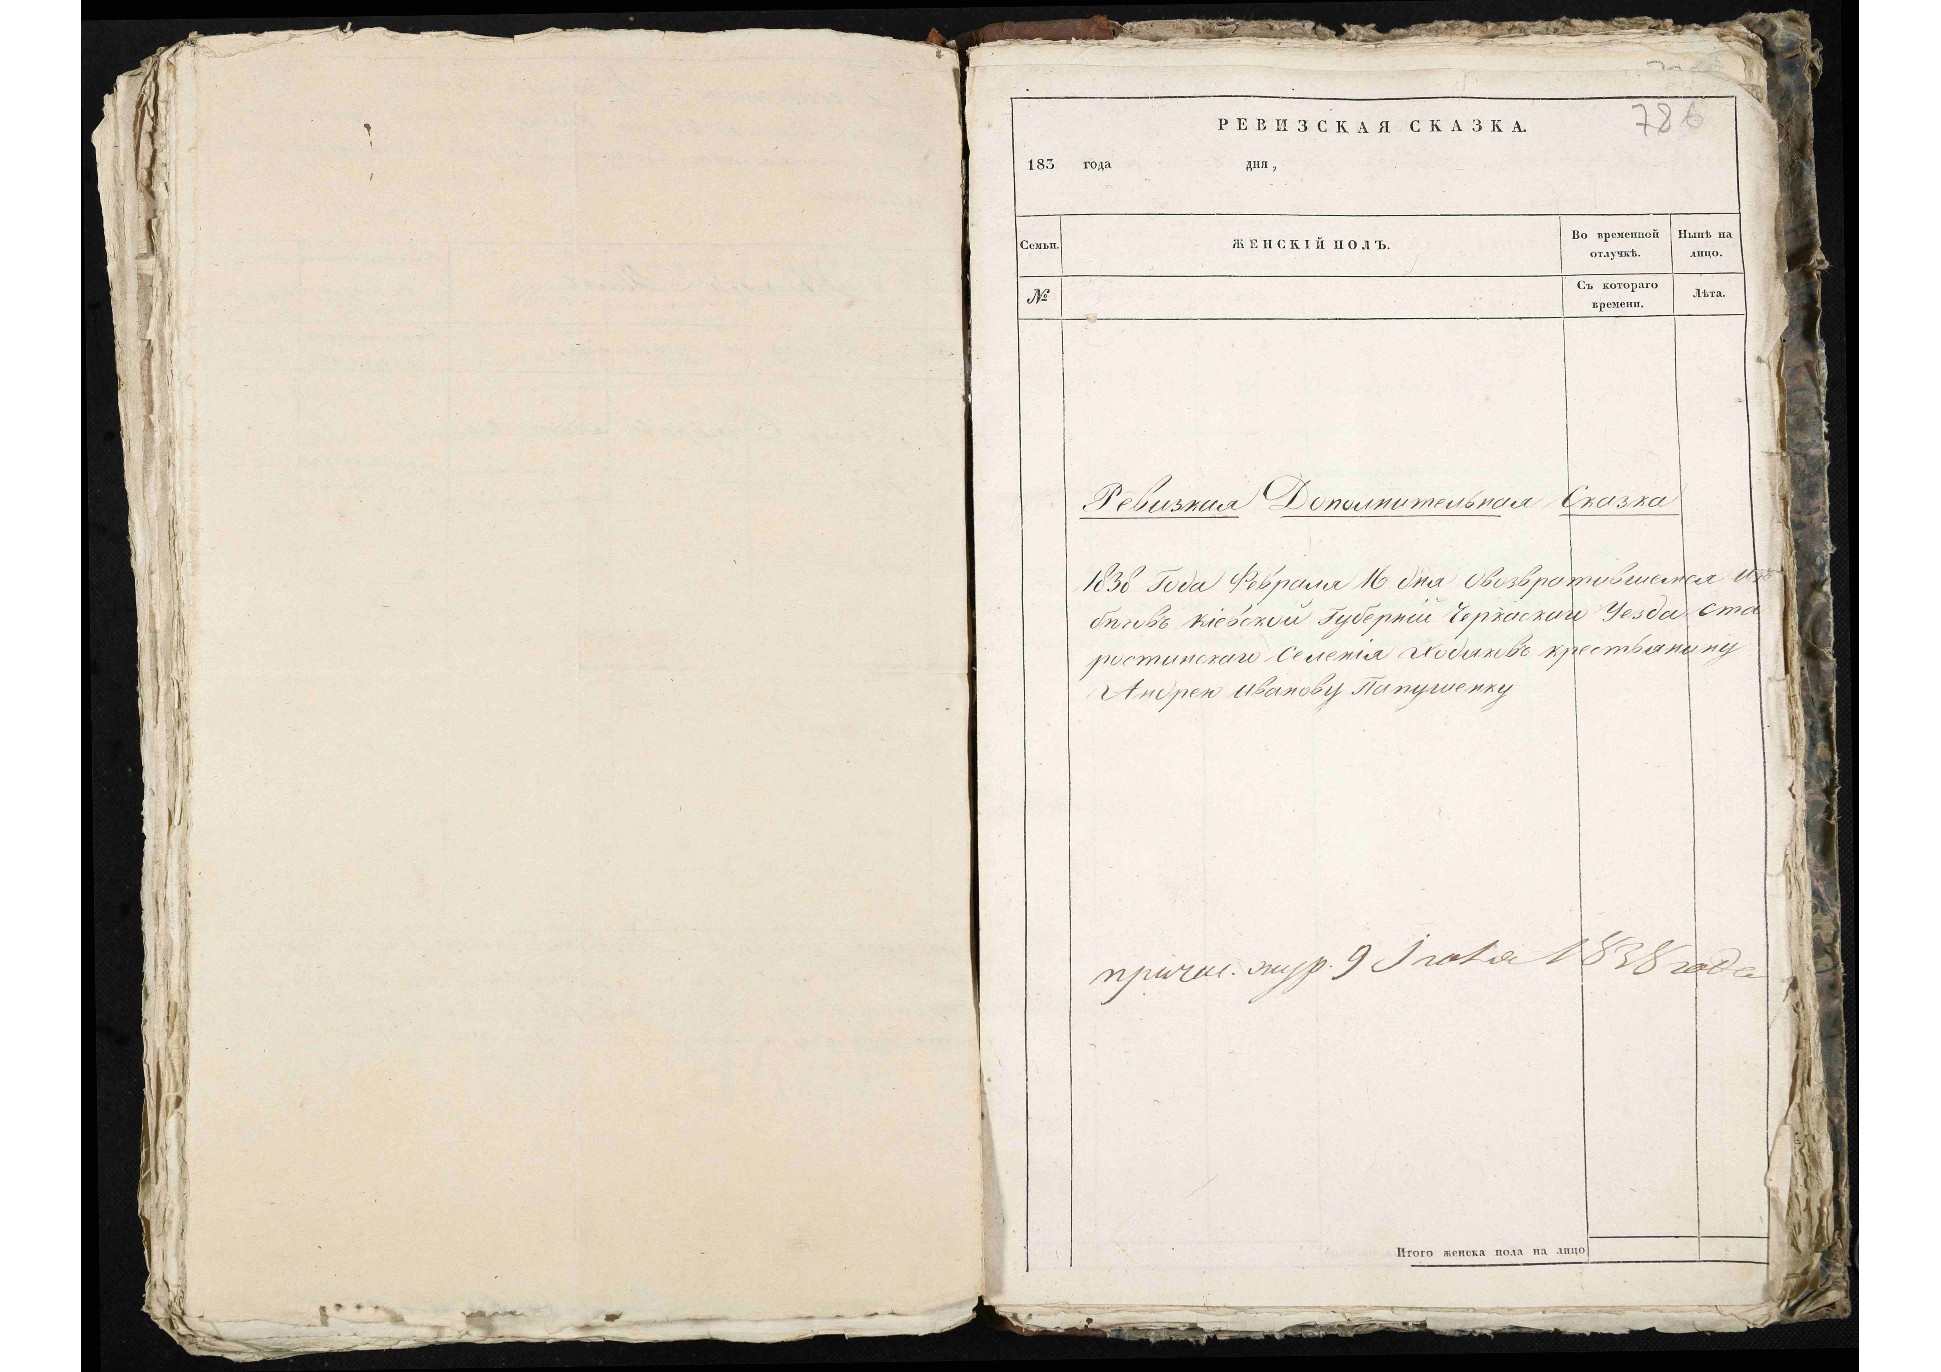 786
РЕВИЗСКАЯ СКАЗКА.
183 года дня,
Семьи. ЖЕНСКІЙ ПОЛЪ. Во временной отлучкѣ. Нынѣ на лицо.
№ Съ котораго времени. Лѣта.
Ревизкая Дополнительная Сказка
1838 Года Февраля 16 дня овозвратившемся изъ
бѣговъ Кіевской Губерніи Черкаскаго Уезда Ста
ростинскаго Селенія Ходаковъ крестьянину
Андрею Иванову Папушенку
причис. жур. 9 Iюля 1838 года
Итого женска пола на лицо